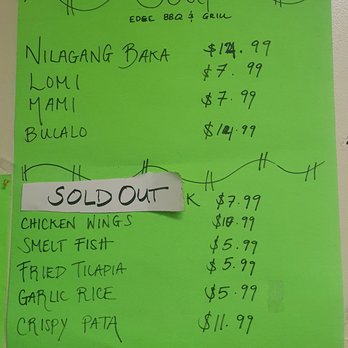 Soup
EDGE BBQ & GRILL
NILAGANG BAKA $14.99
LOMI $7.99
MAMI $7.99
BULALO $14.99
SOLD OUT K $7.99
CHICKEN WINGS $10.99
SMELT FISH $5.99
FRIED TILAPIA $5.99
GARLIC RICE $5.99
CRISPY PATA $11.99